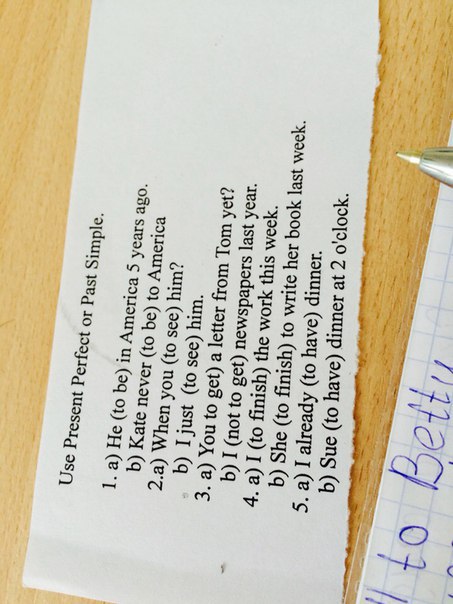 Use Present Perfect or Past Simple.
1. a) He (to be) in America 5 years ago.
b) Kate never (to be) to America
2.a) When you (to see) him?
b) I just (to see) him.
3. a) You to get) a letter from Tom yet?
b) I (not to get) newspapers last year.
4. a) I (to finish) the work this week.
b) She (to finish) to write her book last week.
5. a) I already (to have) dinner.
b) Sue (to have) dinner at 2 o'clock.
to Betty